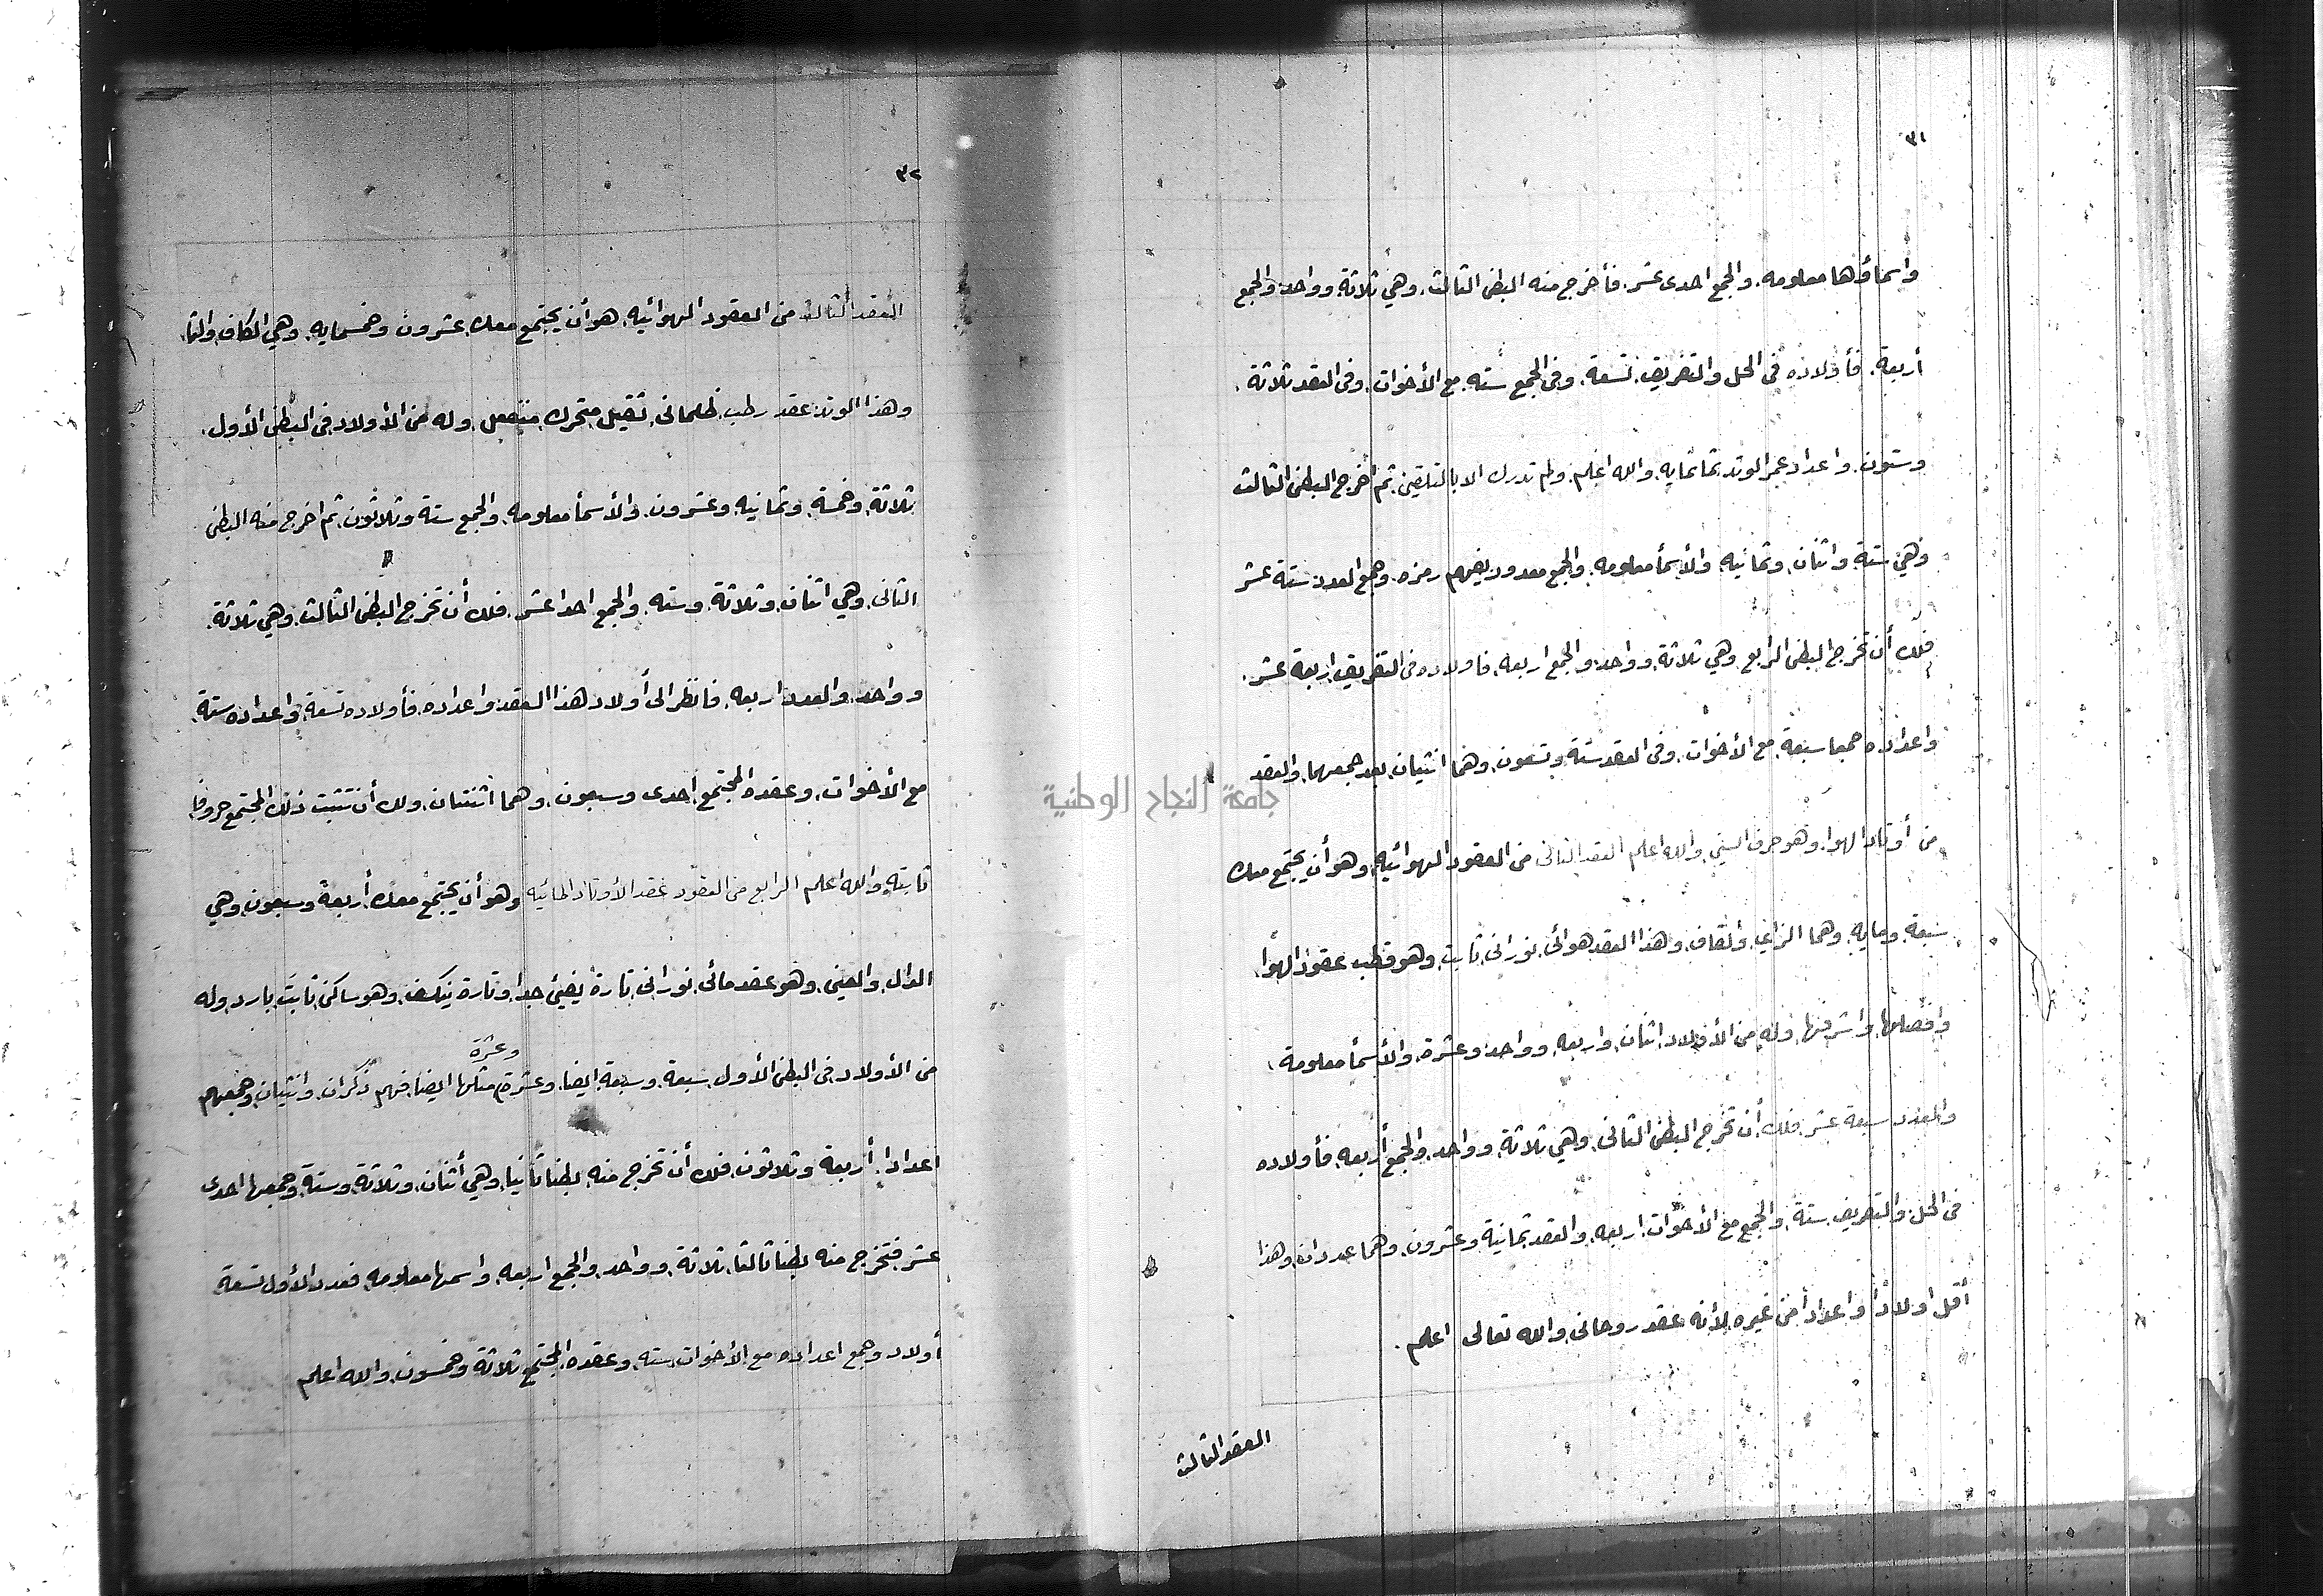 ٣١
واسماؤها معلومه، والجمع احدى عشر. فأخرج منه البطن الثالث، وهي ثلاثة، وواحد، والجمع
أربعة. فأولاده فى الحل والتفريق، تسعة، وفى الجمع سته، مع الأخوات، وفى العقد ثلاثة،
وستون، واعداد عمر الوتد ثمانمايه، والله اعلم، ولم تدرك الا بالتلقين، ثم اخرج البطن الثالث
وهي ستة، واثنان، وثمانيه، والأسمأ معلومه، والجمع معدود يفهم رمزه، وجمع العدد ستة عشر
فلك أن تخرج البطن الرابع، وهي ثلاثة، وواحد، والجمع اربعه، فاولاده فى التفريق، اربعة عشر.
واعداده جمعا سبعة، مع الأخوات، وفى العقد ستة وتسعون، وهما انثيان، بعد جمعهما، والعقد
من أوتاد الهوا، وهو حرف السين، والله اعلم العقد الثانى من العقود الهوائيه، وهو أن يجتمع معك
سبعة، ومايه، وهما الزاى، والقاف، وهذا العقد هوائى، نورانى، ثابت، وهو قطب عقود الهوا،
وافضلها، واشرفها، وله من الأولاد، اثنان، واربعه، وواحد، وعشرة، والأسمأ معلومة،
والعدد سبعة عشر، فلك أن تخرج البطن الثانى، وهي ثلاثة، وواحد، والجمع أربعه، فأولاده
فى الحل، والتفريق، ستة، والجمع مع الأخوات، اربعه، والعقد ثمانية وعشرون، وهما عددان، وهذا
أقل اولاداً واعداداً من غيره، لأنه عقد روحانى، والله تعالى اعلم.
العقد الثالث
٣٢
العقد الثالث من العقود الهوائيه، هو أن يجتمع معك، عشرون وخمسمايه، وهي الكاف، والثا،
وهذا الوتد، عقد رطب، ظلمانى، ثقيل، متحرك، منفعل، وله من الأولاد، فى البطن الأول،
ثلاثة، وخمسة، وثمانيه وعشرون، والأسمأ معلومه، والجمع ستة وثلاثون، ثم اخرج منه البطن
الثانى، وهي اثنان، وثلاثة، وسته، والجمع احدا عشر، فلك أن تخرج البطن الثالث، وهي ثلاثة،
وواحد، والعدد اربعه، فانظر الى أولاد هذا العقد، واعداده، فأولاده تسعة، واعداده ستة،
مع الأخوات، وعقده المجتمع، احدى وسبعون، وهما اثنتان، ولك أن تثبت ذلك المجتمع حروفا،
ثابته، والله اعلم الرابع من العقود عقد الأوتاد المائيه وهو أن يجتمع معك، أربعة وسبعون، وهي
الدال، والعين، وهو عقد مائى، نورانى، تارة يضيئ جدا، وتارة ينكسف، وهو ساكن، ثابت، بارد، وله
وعشرة
من الأولاد فى البطن الأول، سبعة، وسبعة ايضا، وعشرة، مثلها ايضا، فهم ذكران، وانثيان، وجمعهم
اعدادا، أربعة وثلاثون، فلك أن تخرج منه، بطنا ثانيا، وهي أثنان، وثلاثة، وستة، وجمعها احدى
عشر، فتخرج منه بطنا ثالثا، ثلاثة، وواحد، والجمع اربعه، واسمها معلومه، فعدد الأول تسعة
أولاد، وجمع اعداده مع الأخوات، سته، وعقده المجتمع ثلاثة وخمسون، والله اعلم
جامعة النجاح الوطنية